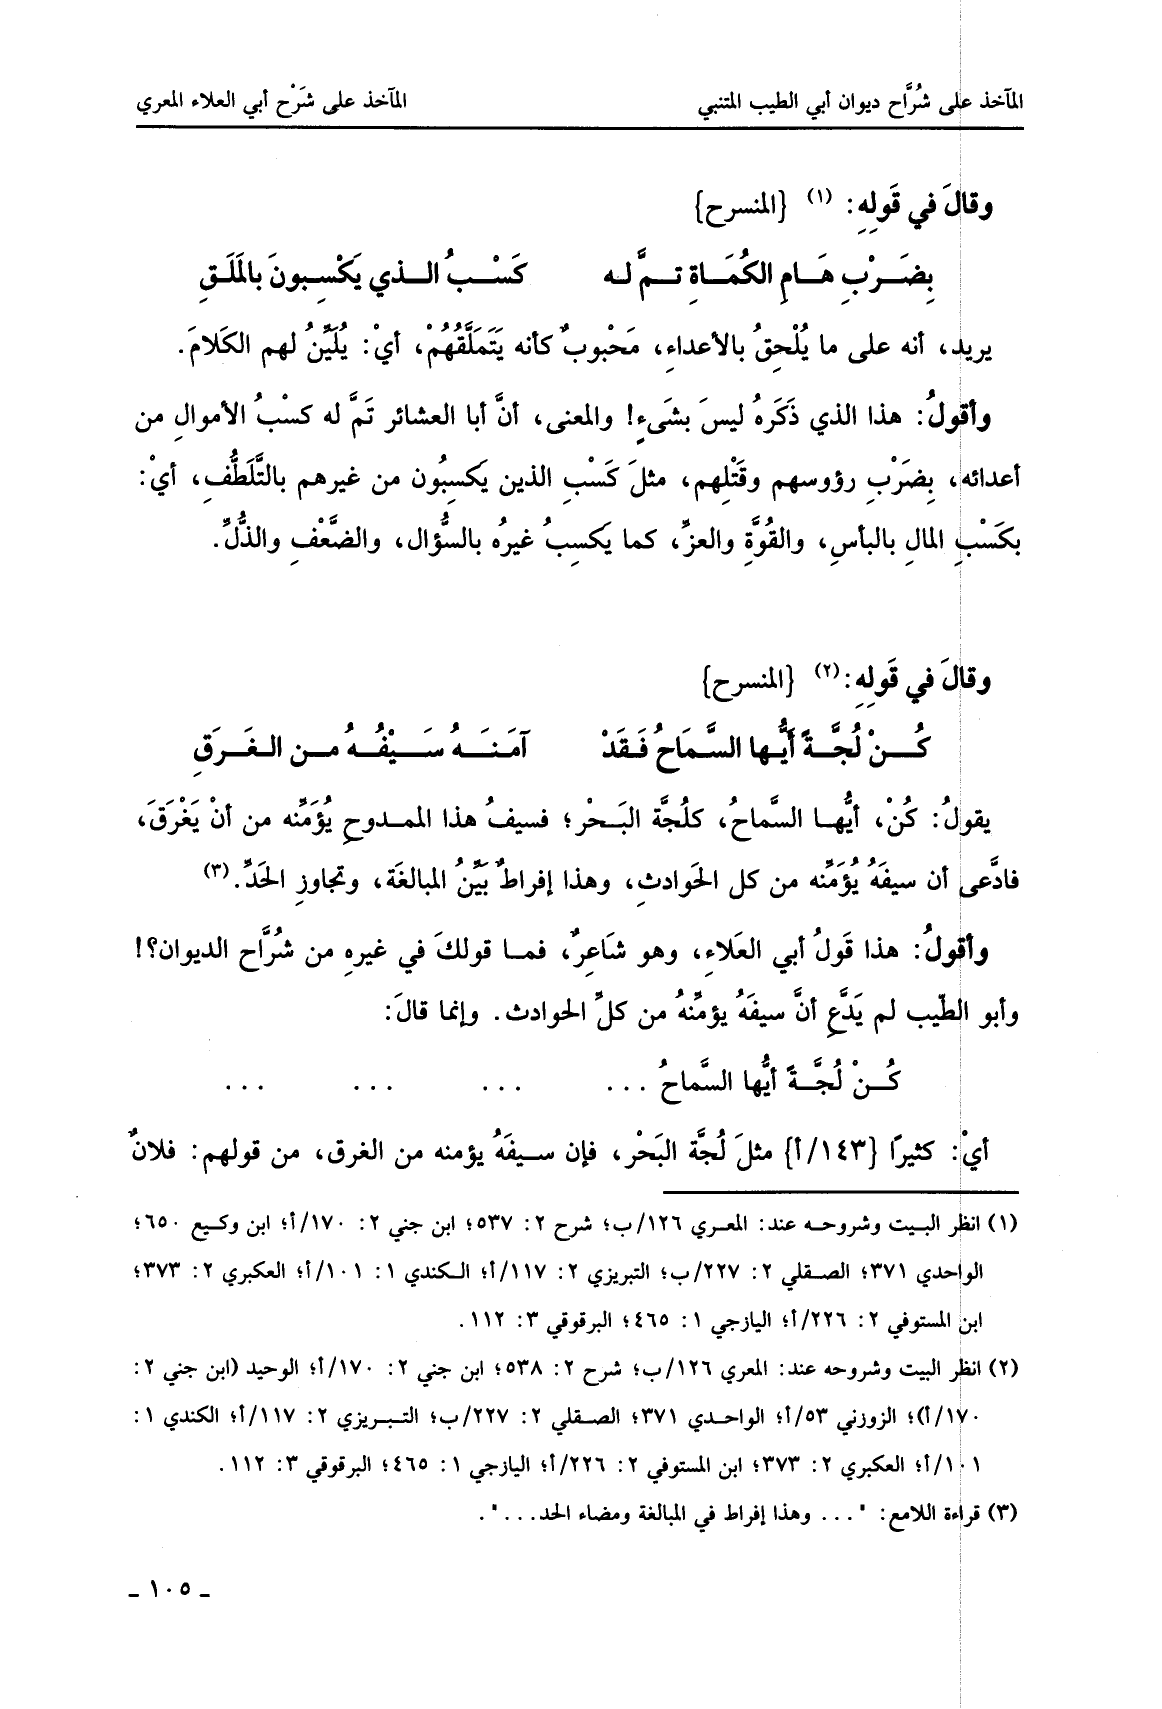 المآخذ على شُرَّاح ديوان أبي الطيب المتنبي المآخذ على شَرْح أبي العلاء المعري
وقالَ في قَولِهِ: (١) {المنسرح}
بِضَرْبِ هَامِ الكُمَاةِ تمَّ له كَسْبُ الذي يَكْسِبونَ بالمَلَقِ
يريد، أنه على ما يُلْحِقُ بالأعداءِ، مَحْبوبٌ كأنه يَتَمَلَّقُهُمْ، أيْ: يُلَيِّنُ لهم الكَلامَ.
وأقولُ: هذا الذي ذَكَرهُ ليسَ بشَيءٍ! والمعنى، أنَّ أبا العشائر تَمَّ له كسْبُ الأموالِ من
أعدائه، بِضَرْبِ رؤوسهم وقَتْلِهم، مثلَ كَسْبِ الذين يَكسِبُون من غيرهم بالتَّلَطُّفِ، أيْ:
بكَسْبِ المالِ بالبأسِ، والقُوَّةِ والعزِّ، كما يَكسِبُ غيرُه بالسُّؤال، والضَّعْفِ والذُّلِّ.
وقالَ في قَولِهِ:(٢) {المنسرح}
كُنْ لُجَّةً أيُّها السَّمَاحُ فَقَدْ آمَنَهُ سَيْفُهُ من الغَرَقِ
يقولُ: كُنْ، أيُّها السَّماحُ، كلُجَّة البَحْر؛ فسيفُ هذا الممدوحِ يُؤمِّنه من أنْ يَغْرَقَ،
فادَّعى أن سيفَهُ يُؤَمِّنه من كل الحَوادثِ، وهذا إفراطٌ بَيِّنُ المبالغَة، وتجاوزِ الحَدِّ.(٣)
وأقولُ: هذا قَولُ أبي العَلاءِ، وهو شاعرٌ، فما قولكَ في غيرِهِ من شُرَّاح الديوان؟!
وأبو الطيّب لم يَدَّعِ أنَّ سيفَهُ يؤمِّنهُ من كلِّ الحوادث. وإنما قالَ:
كُنْ لُجَّةً أيُّها السَّماحُ ... ... ... ...
أيْ: كثيرًا {١٤٣/أ} مثلَ لُجَّة البَحْر، فإن سيفَهُ يؤمنه من الغرق، من قولهم: فلانٌ
(١) انظر البيت وشروحه عند: المعري ١٢٦/ب؛ شرح ٢: ٥٣٧؛ ابن جني ٢: ١٧٠/أ؛ ابن وكيع ٦٥٠؛
الواحدي ٣٧١؛ الصقلي ٢: ٢٢٧/ب؛ التبريزي ٢: ١١٧/أ؛ الكندي ١: ١٠١/أ؛ العكبري ٢: ٣٧٣؛
ابن المستوفي ٢: ٢٢٦/أ؛ اليازجي ١: ٤٦٥؛ البرقوقي ٣: ١١٢.
(٢) انظر البيت وشروحه عند: المعري ١٢٦/ب؛ شرح ٢: ٥٣٨؛ ابن جني ٢: ١٧٠/أ؛ الوحيد (ابن جني ٢:
١٧٠/أ)؛ الزوزني ٥٣/أ؛ الواحدي ٣٧١؛ الصقلي ٢: ٢٢٧/ب؛ التبريزي ٢: ١١٧/أ؛ الكندي ١:
١٠١/أ؛ العكبري ٢: ٣٧٣؛ ابن المستوفي ٢: ٢٢٦/أ؛ اليازجي ١: ٤٦٥؛ البرقوقي ٣: ١١٢.
(٣) قراءة اللامع: "... وهذا إفراط في المبالغة ومضاء الحد...".
ـ ١٠٥ ـ